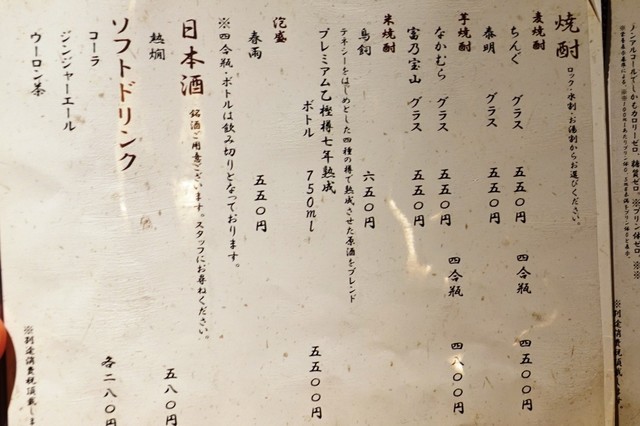 焼酎 ロック・水割・お湯割からお選びください。
麦焼酎
ちんぐ グラス 五五〇円 四合瓶 四五〇〇円
泰明 グラス 五五〇円
芋焼酎
なかむら グラス 五五〇円 四合瓶 四八〇〇円
富乃宝山 グラス 五五〇円
米焼酎
鳥飼 六五〇円
テネシーをはじめとした四種の樽で熟成させた原酒をブレンド
プレミアム乙 樫樽七年熟成
ボトル 750ml 五五〇〇円
泡盛
春雨 五五〇円
※四合瓶・ボトルは飲み切りとなっております。
日本酒 銘酒ご用意ございます。スタッフにお尋ねください。
熱燗 五八〇円
ソフトドリンク
コーラ 各二八〇円
ジンジャーエール
ウーロン茶
※別途消費税頂戴しま